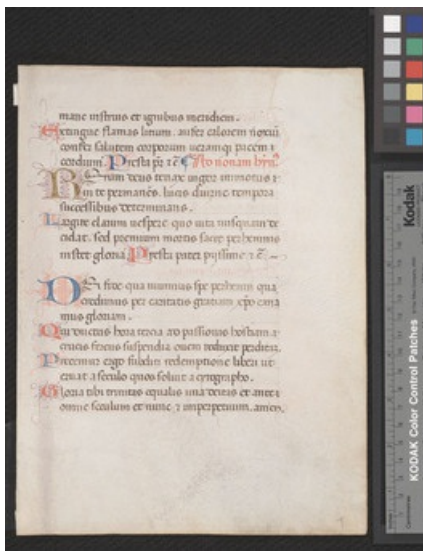 mane instruis et ignibus meridiem.
Extingue flamas litium. aufer calorem noxiū
confer salutem corporum ueramqʒ pacem ⁊
cordium. Presta pr̄ ⁊ c̄ Ad nonam hȳn⁹.
Rerum deus tenax uigor inmotus ⁊
in te permanēs. lucis diurne tempora
successibus determinans.
Largire clarum uespere quo uita nusquam de
cidat. sed premium mortis sacre perhennis
instet gloria. Presta pater pijssime ⁊ c̄
Dei fide qua uiuimus spe perhenni qua
credimus per caritatis gratiam xp̄o cana
mus gloriam.
Qui ductus hora tercia ad passionis hostiam ⁊
crucis ferens suspendia ouem reduxit perditā.
Precemur ergo subditi redemptione liberi ut
eruat a seculo quos soluit a cyrographo.
Gloria tibi trinitas equalis una deitas et ante ⁊
omne seculum et nunc ⁊ inperpetuum. amen.
Kodak
KODAK Color Control Patches